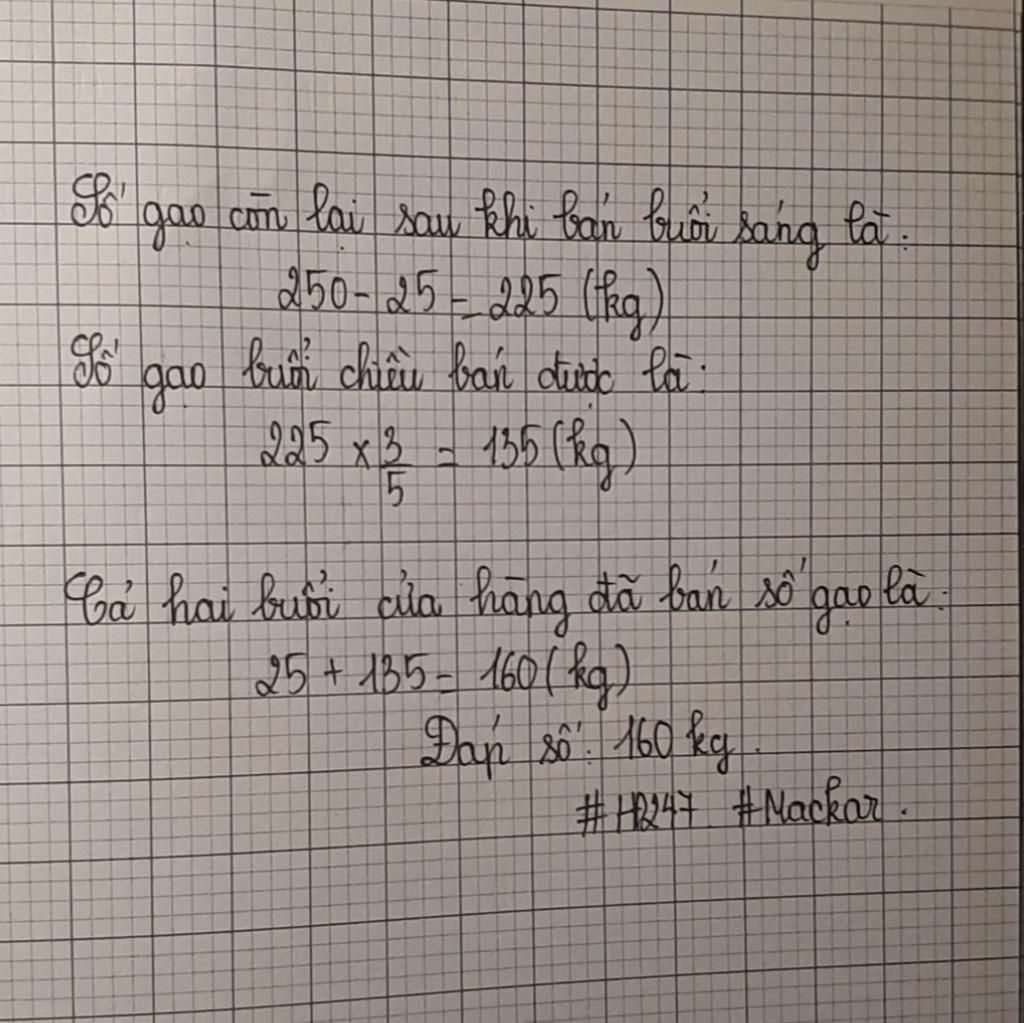 Số gạo còn lại sau khi bán buổi sáng là:
250 - 25 = 225 (kg)
Số gạo buổi chiều bán được là:
225 × 3/5 = 135 (kg)
Cả hai buổi cửa hàng đã bán số gạo là:
25 + 135 = 160 (kg)
Đáp số: 160 kg.
#H247 #Mackar.